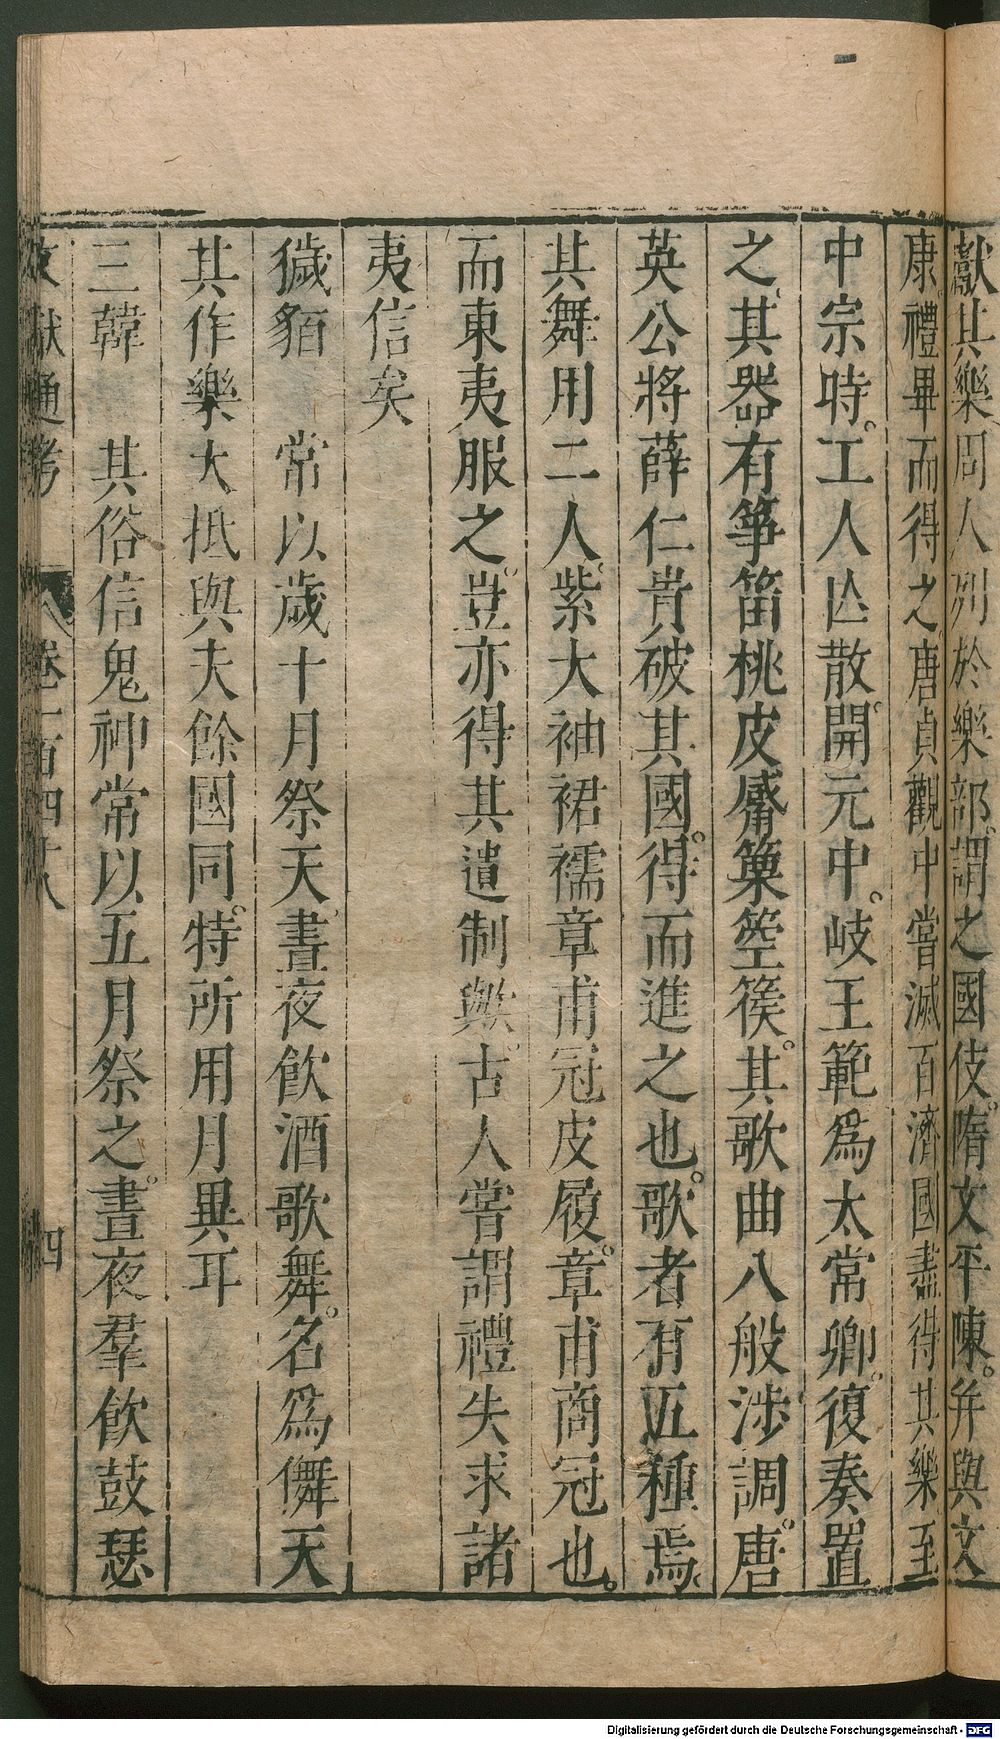 獻其樂周人列於樂部謂之國伎隋文平陳并與文
康禮畢而得之唐貞觀中嘗滅百濟國盡得其樂至
中宗時工人亾散開元中岐王範爲太常卿復奏置
之其器有箏笛桃皮觱篥箜篌其歌曲八般涉調唐
英公將薛仁貴破其國得而進之也歌者有五種焉
其舞用二人紫大袖裙襦章甫冠皮履章甫商冠也
而東夷服之豈亦得其遺制歟古人嘗謂禮失求諸
夷信矣
獩貊 常以歲十月祭天晝夜飲酒歌舞名爲儛天
其作樂大抵與夫餘國同特所用月異耳
三韓 其俗信鬼神常以五月祭之晝夜羣飲鼓瑟
文獻通考 卷一百四十八 四
Digitalisierung gefördert durch die Deutsche Forschungsgemeinschaft - DFG